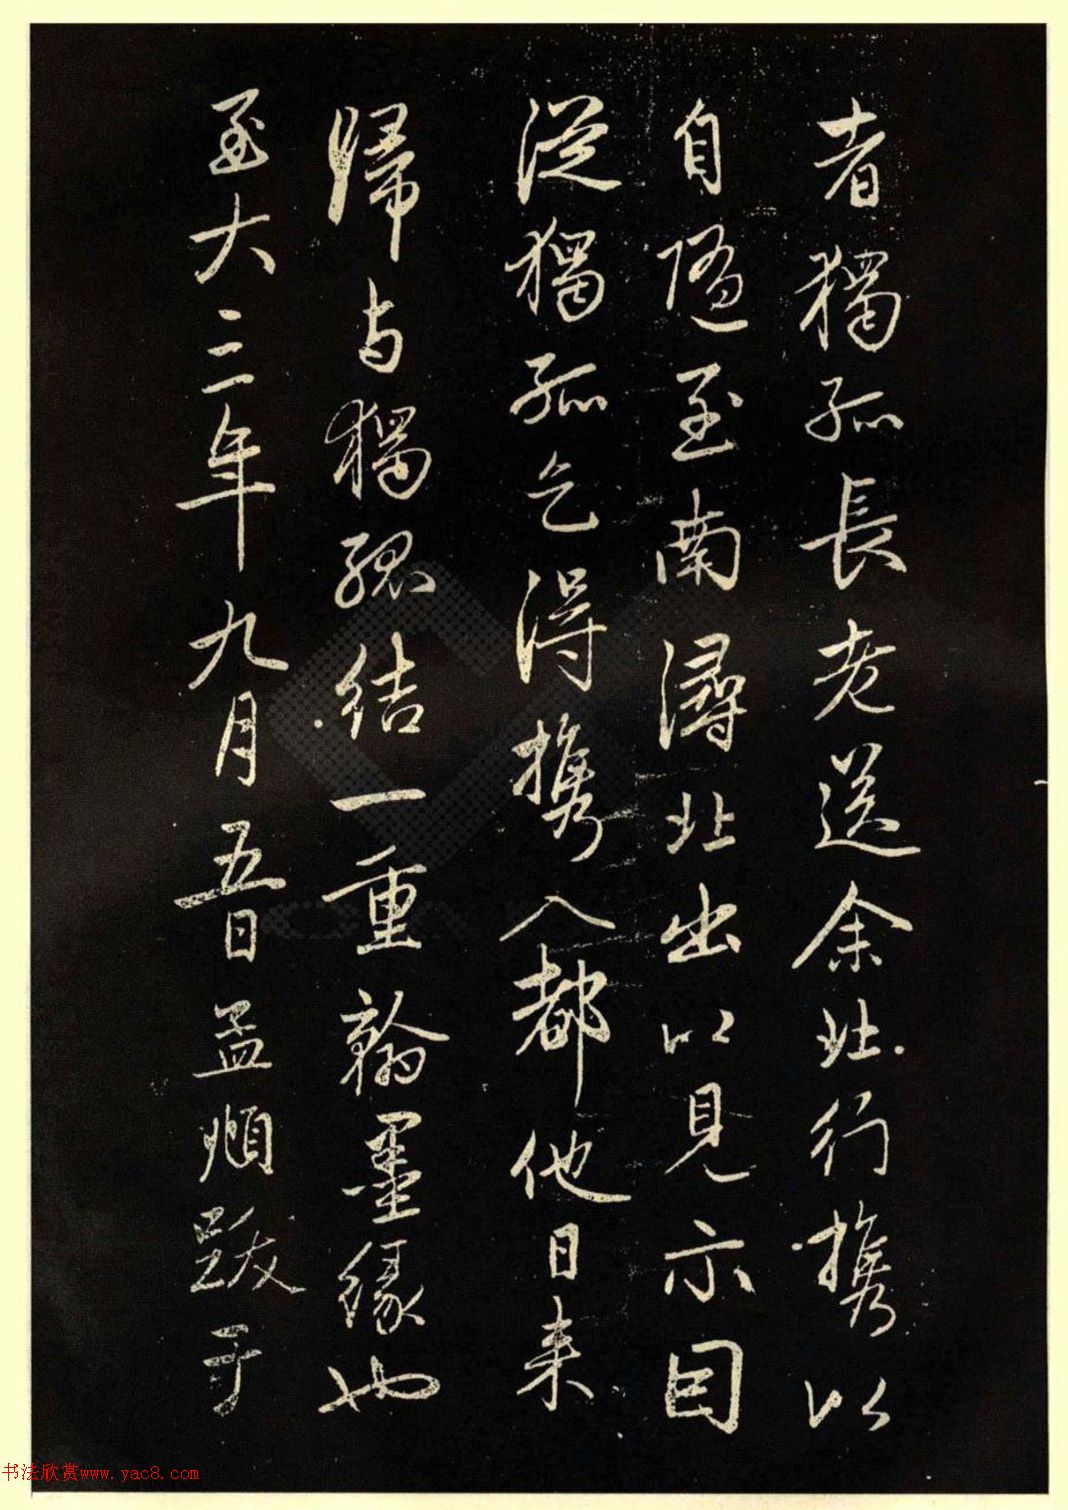 者獨孤長老送余北行攜以
自隨至南潯北出以見示因
從獨孤乞得攜入都他日來
歸與獨孤結一重翰墨緣也
至大三年九月五日孟頫跋于
书法欣赏www.yac8.com